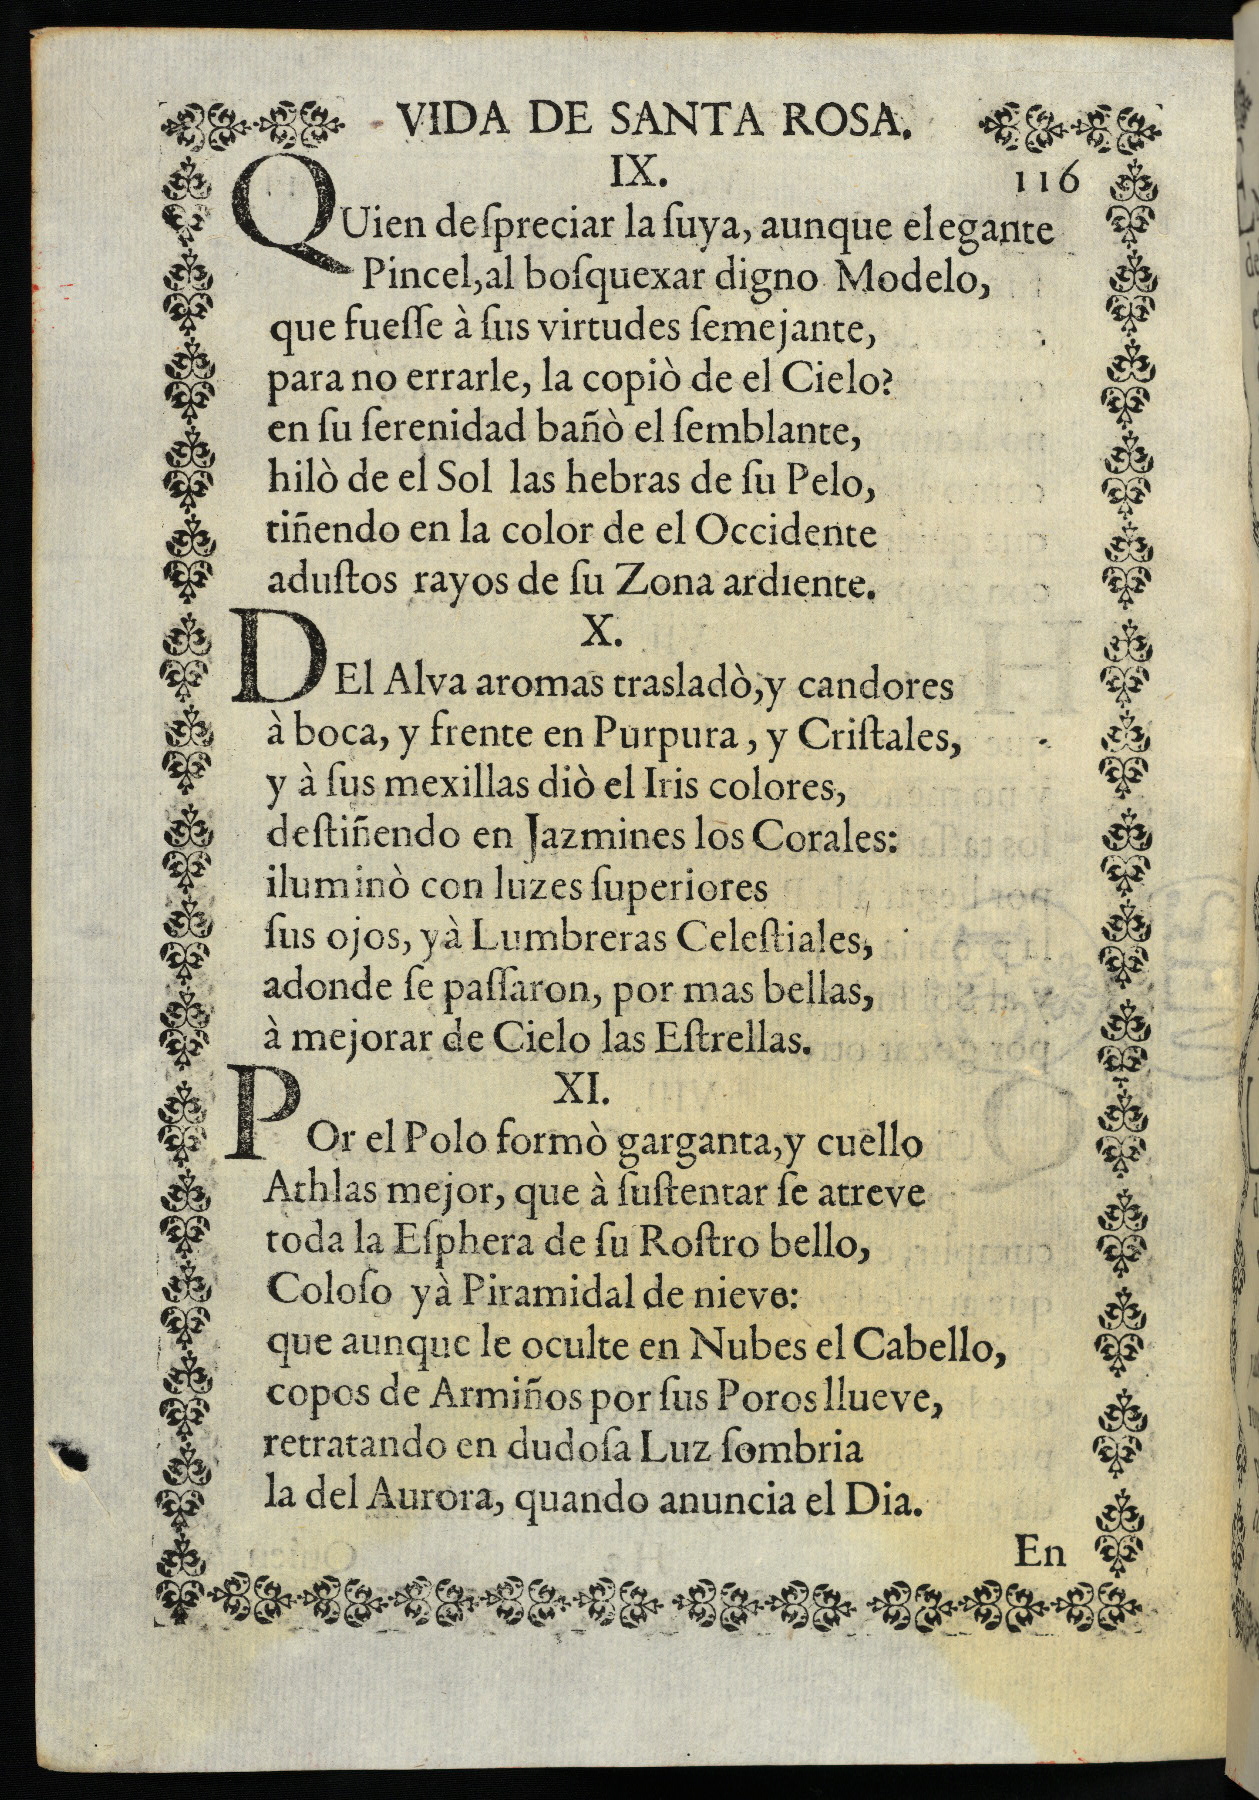 VIDA DE SANTA ROSA.
IX.
116
QUien deſpreciar la ſuya, aunque elegante
Pincel, al boſquexar digno Modelo,
que fueſſe à ſus virtudes ſemejante,
para no errarle, la copiò de el Cielo?
en ſu ſerenidad bañò el ſemblante,
hilò de el Sol las hebras de ſu Pelo,
tiñendo en la color de el Occidente
aduſtos rayos de ſu Zona ardiente.
X.
DEl Alva aromas trasladò, y candores
à boca, y frente en Purpura, y Criſtales,
y à ſus mexillas diò el Iris colores,
deſtiñendo en Jazmines los Corales:
iluminò con luzes ſuperiores
ſus ojos, yà Lumbreras Celeſtiales,
adonde ſe paſſaron, por mas bellas,
à mejorar de Cielo las Eſtrellas.
XI.
POr el Polo formò garganta, y cuello
Athlas mejor, que à ſuſtentar ſe atreve
toda la Eſphera de ſu Roſtro bello,
Coloſo yà Piramidal de nieve:
que aunque le oculte en Nubes el Cabello,
copos de Armiños por ſus Poros llueve,
retratando en dudoſa Luz ſombria
la del Aurora, quando anuncia el Dia.
En